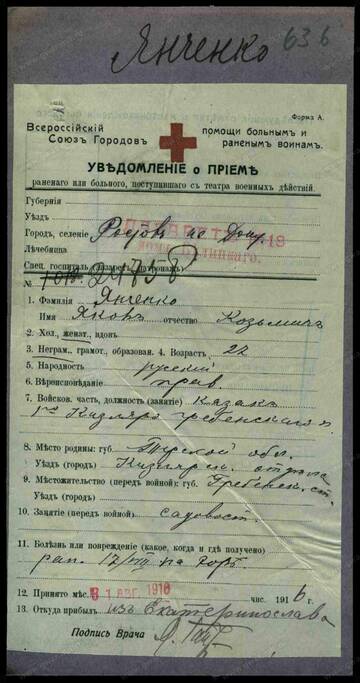 Янченко 636
Форма А.
Всероссійскій Союзъ Городовъ
помощи больнымъ и раненымъ воинамъ.
УВѢДОМЛЕНІЕ о ПРІЕМѢ
раненаго или больного, поступившаго съ театра военныхъ дѣйствій.
Губернія
Уѣздъ
Городъ, селеніе Ростовъ на Дону
Лѣчебница
Спец. госпиталь (лазаретъ, патронажъ)
№ 24758
1. Фамилія Янченко
Имя Яковъ отчество Козьмичъ
2. Хол., женат., вдовъ
3. Неграм., грамот., образован. 4. Возрастъ 22
5. Народность русскій
6. Вѣроисповѣданіе прав.
7. Войсков. часть, должность (занятіе) Казакъ
1го Кизляро Гребенского п.
8. Мѣсто родины: губ. Терской обл.
Уѣздъ (городъ) Кизлярск. отдѣла
9. Мѣстожительство (передъ войной): губ. Гребенск. ст.
Уѣздъ (городъ)
10. Занятіе (передъ войной) садовост.
11. Болѣзнь или поврежденіе (какое, когда и гдѣ получено)
ран. 17/VIII на
12. Принято мѣс. 31 АВГ. 1916 чис. 191 6 г.
13. Откуда прибылъ изъ Екатеринослава
Подпись Врача